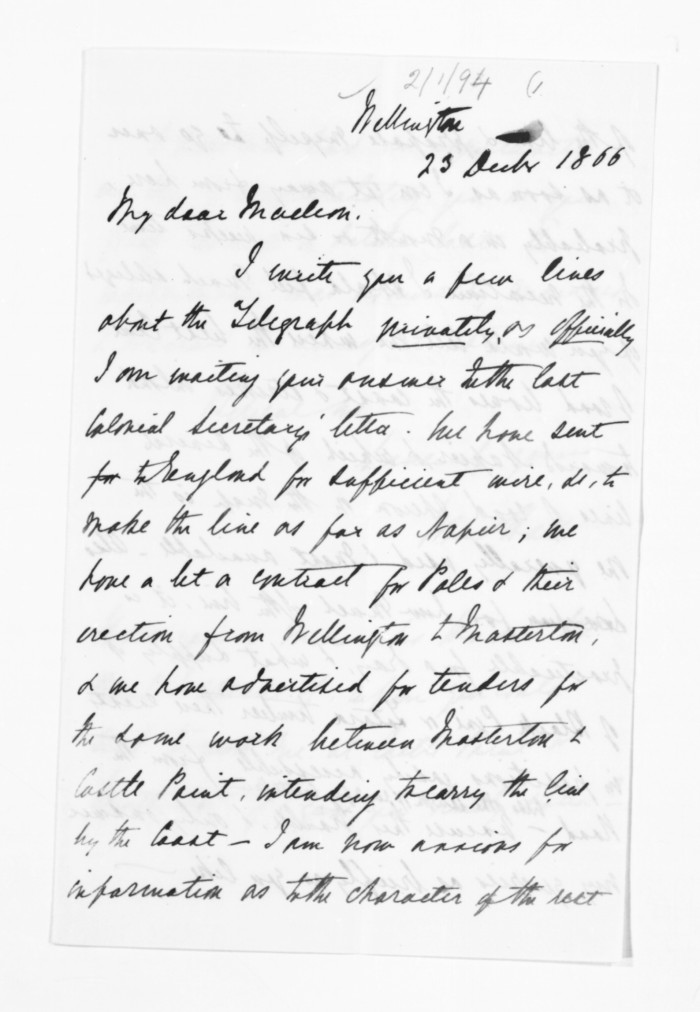 2/1/94
Wellington
23 Decbr 1866
My dear Maclean.
I write you a few lines
about the Telegraph privately, as officially
I am waiting your answer to the last
Colonial Secretary's letter. We have sent
for to England for sufficient wire, &c, to
make the line as far as Napier; we
have a let a contract for Poles & their
erection from Wellington to Masterton,
& we have advertised for tenders for
the same work between Masterton &
Castle Point, intending to carry the line
by the Coast – I am now anxious for
information as to the character of the rest